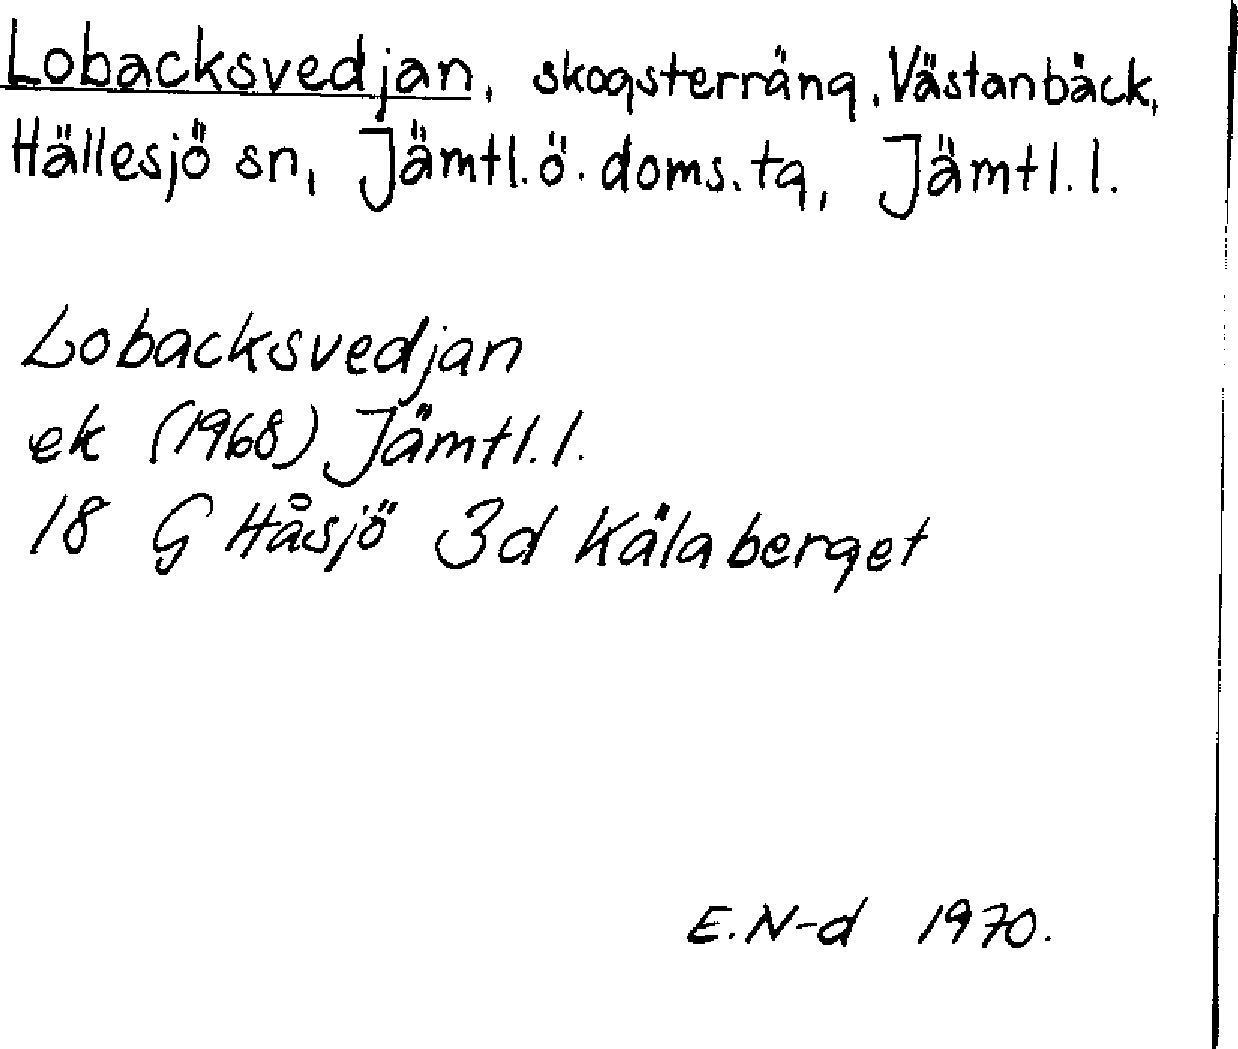 Lobacksvedjan, skogsterräng, Västanbäck,
Hällesjö sn, Jämtl. ö. doms. tg, Jämtl. l.
Lobacksvedjan
ek (1968) Jämtl. l.
18 G Håsjö 3d Kälaberget
E. N-d 1970.